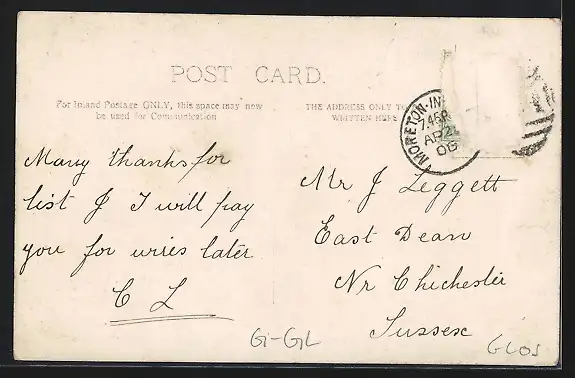 POST CARD.
For Inland Postage ONLY, this space may now
be used for Communication
THE ADDRESS ONLY TO
WRITTEN HERE
MORETON-IN
7.45P
AP 2
06
Many thanks for
list & I will pay
you for wries later
C L
Mr J Leggett
East Dean
Nr Chichester
Sussex
Gi-GL
GLOS